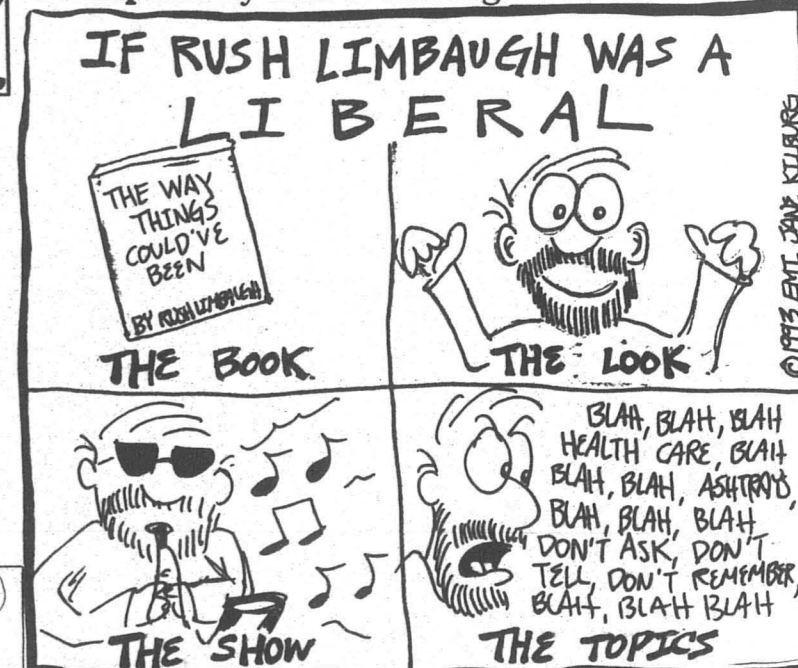 IF RUSH LIMBAUGH WAS A
LIBERAL
THE WAY
THINGS
COULD'VE
BEEN
BY RUSH LIMBAUGH
THE BOOK
THE LOOK
©1993 EMI JANE KILBURG
THE SHOW
BLAH, BLAH, BLAH
HEALTH CARE, BLAH
BLAH, BLAH, ASHTRAYS,
BLAH, BLAH, BLAH
DON'T ASK, DON'T
TELL, DON'T REMEMBER,
BLAH, BLAH BLAH
THE TOPICS